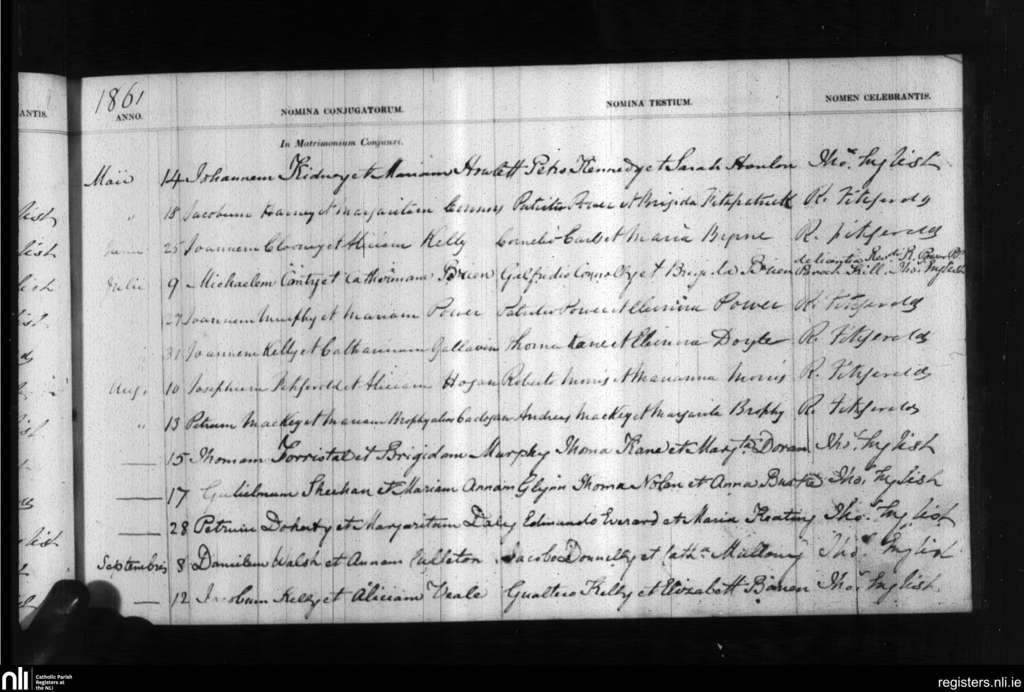 1861
ANNO. NOMINA CONJUGATORUM. NOMINA TESTIUM. NOMEN CELEBRANTIS.
ANTIS.
In Matrimonium Conjunxi.
Maii 14 Johannem Kidney et Mariam Howlett Petro Kennedy et Sarah Honlon Thos. English
" 18 Jacobum et Margaritam Connors Patritio Power et Brigida Fitzpatrick R. Fitzgerald
Junii 25 Joannem Clooney et Aliciam Kelly Cornelio et Maria Byrne R. Fitzgerald
Julii 9 Michaelem et Catherinam Breen Galfridio Connolly et Brigida Breen de licentia Revdi. R. Power P.P.
Thos. English
27 Joannem Murphy et Mariam Power Patritio Power et Elenina Power R. Fitzgerald
31 Joannem Kelly et Catharinam Gallavin Thoma Kane et Elenina Doyle R. Fitzgerald
Aug. 10 Josephum Fitzgerald et Aliciam Hogan Roberto Morris et Marianna Morris R. Fitzgerald
" 13 Petrum Mackey et Mariam Brophy alias Andreas Mackey et Margarita Brophy R. Fitzgerald
— 15 Thomam Forristal et Brigidam Murphy Thoma Kane et Margta. Doran Thos. English
— 17 Gulielmum Sheehan et Mariam Annam Glynn Thoma Nolan et Anna Burke Thos. English
— 28 Petrum Doherty et Margaritam Daly Edmundo Everard et Maria Keating Thos. English
Septembris 8 Danielem Walsh et Annam Jacobo Donnelly et Cathn. Mullony Thos. English
— 12 Jacobum Kelly et Aliciam Veale Gualtero Kelly et Elizabett Barren Thos. English
nli Catholic Parish
Registers at
the NLI
registers.nli.ie